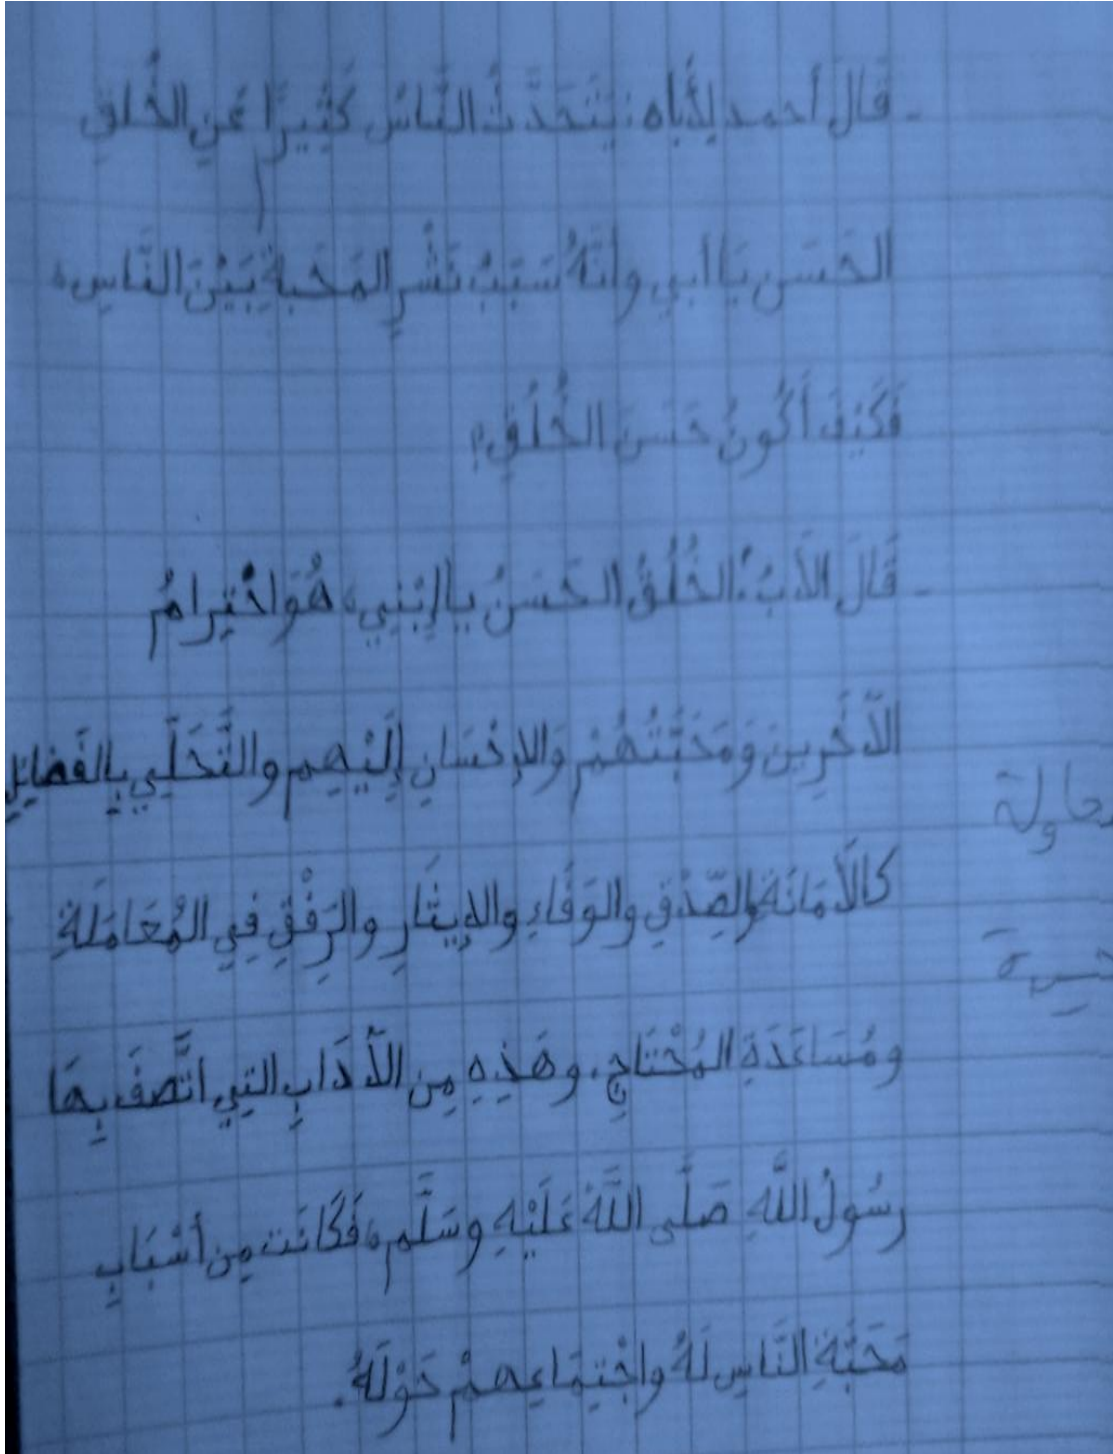 - قَالَ أحمد لِأَباه : يَتَحَدَّثُ النَّاسُ كَثِيرًا عَنِ الخُلقِ
الحَسَنِ يَا أبي وأنَّهُ سَبَبُ نَشْرِ المَحَبةِ بَيْنَ النَّاسِ،
فَكَيْفَ أَكُونُ حَسَنَ الخُلُقِ؟
- قَالَ الأَبُ : الخُلُقُ الحَسَنُ يا إبْنِي، هُوَ احْتِرامُ
الآخَرِينَ وَمَحَبَّتُهُمْ وَالإحْسَانِ إِلَيْهِم والتَّحَلِّي بِالفَضائِلِ
كالأَمَانَةِ والصِّدْقِ والوَفَاءِ والإيثَارِ والرِفْقِ فِي المُعَامَلَةِ
ومُسَاعَدَةِ المُحْتَاجِ. وهَذِهِ مِن الآدَابِ التِي اتَّصَفَ بِهَا
رسُولُ اللَّهِ صَلَّى اللَّهُ عَلَيْهِ وسَلَّم، فَكَانَت مِن أسْبَابِ
مَحَبَّةِ النَّاسِ لَهُ واجْتِمَاعِهمْ حَوْلَهُ.